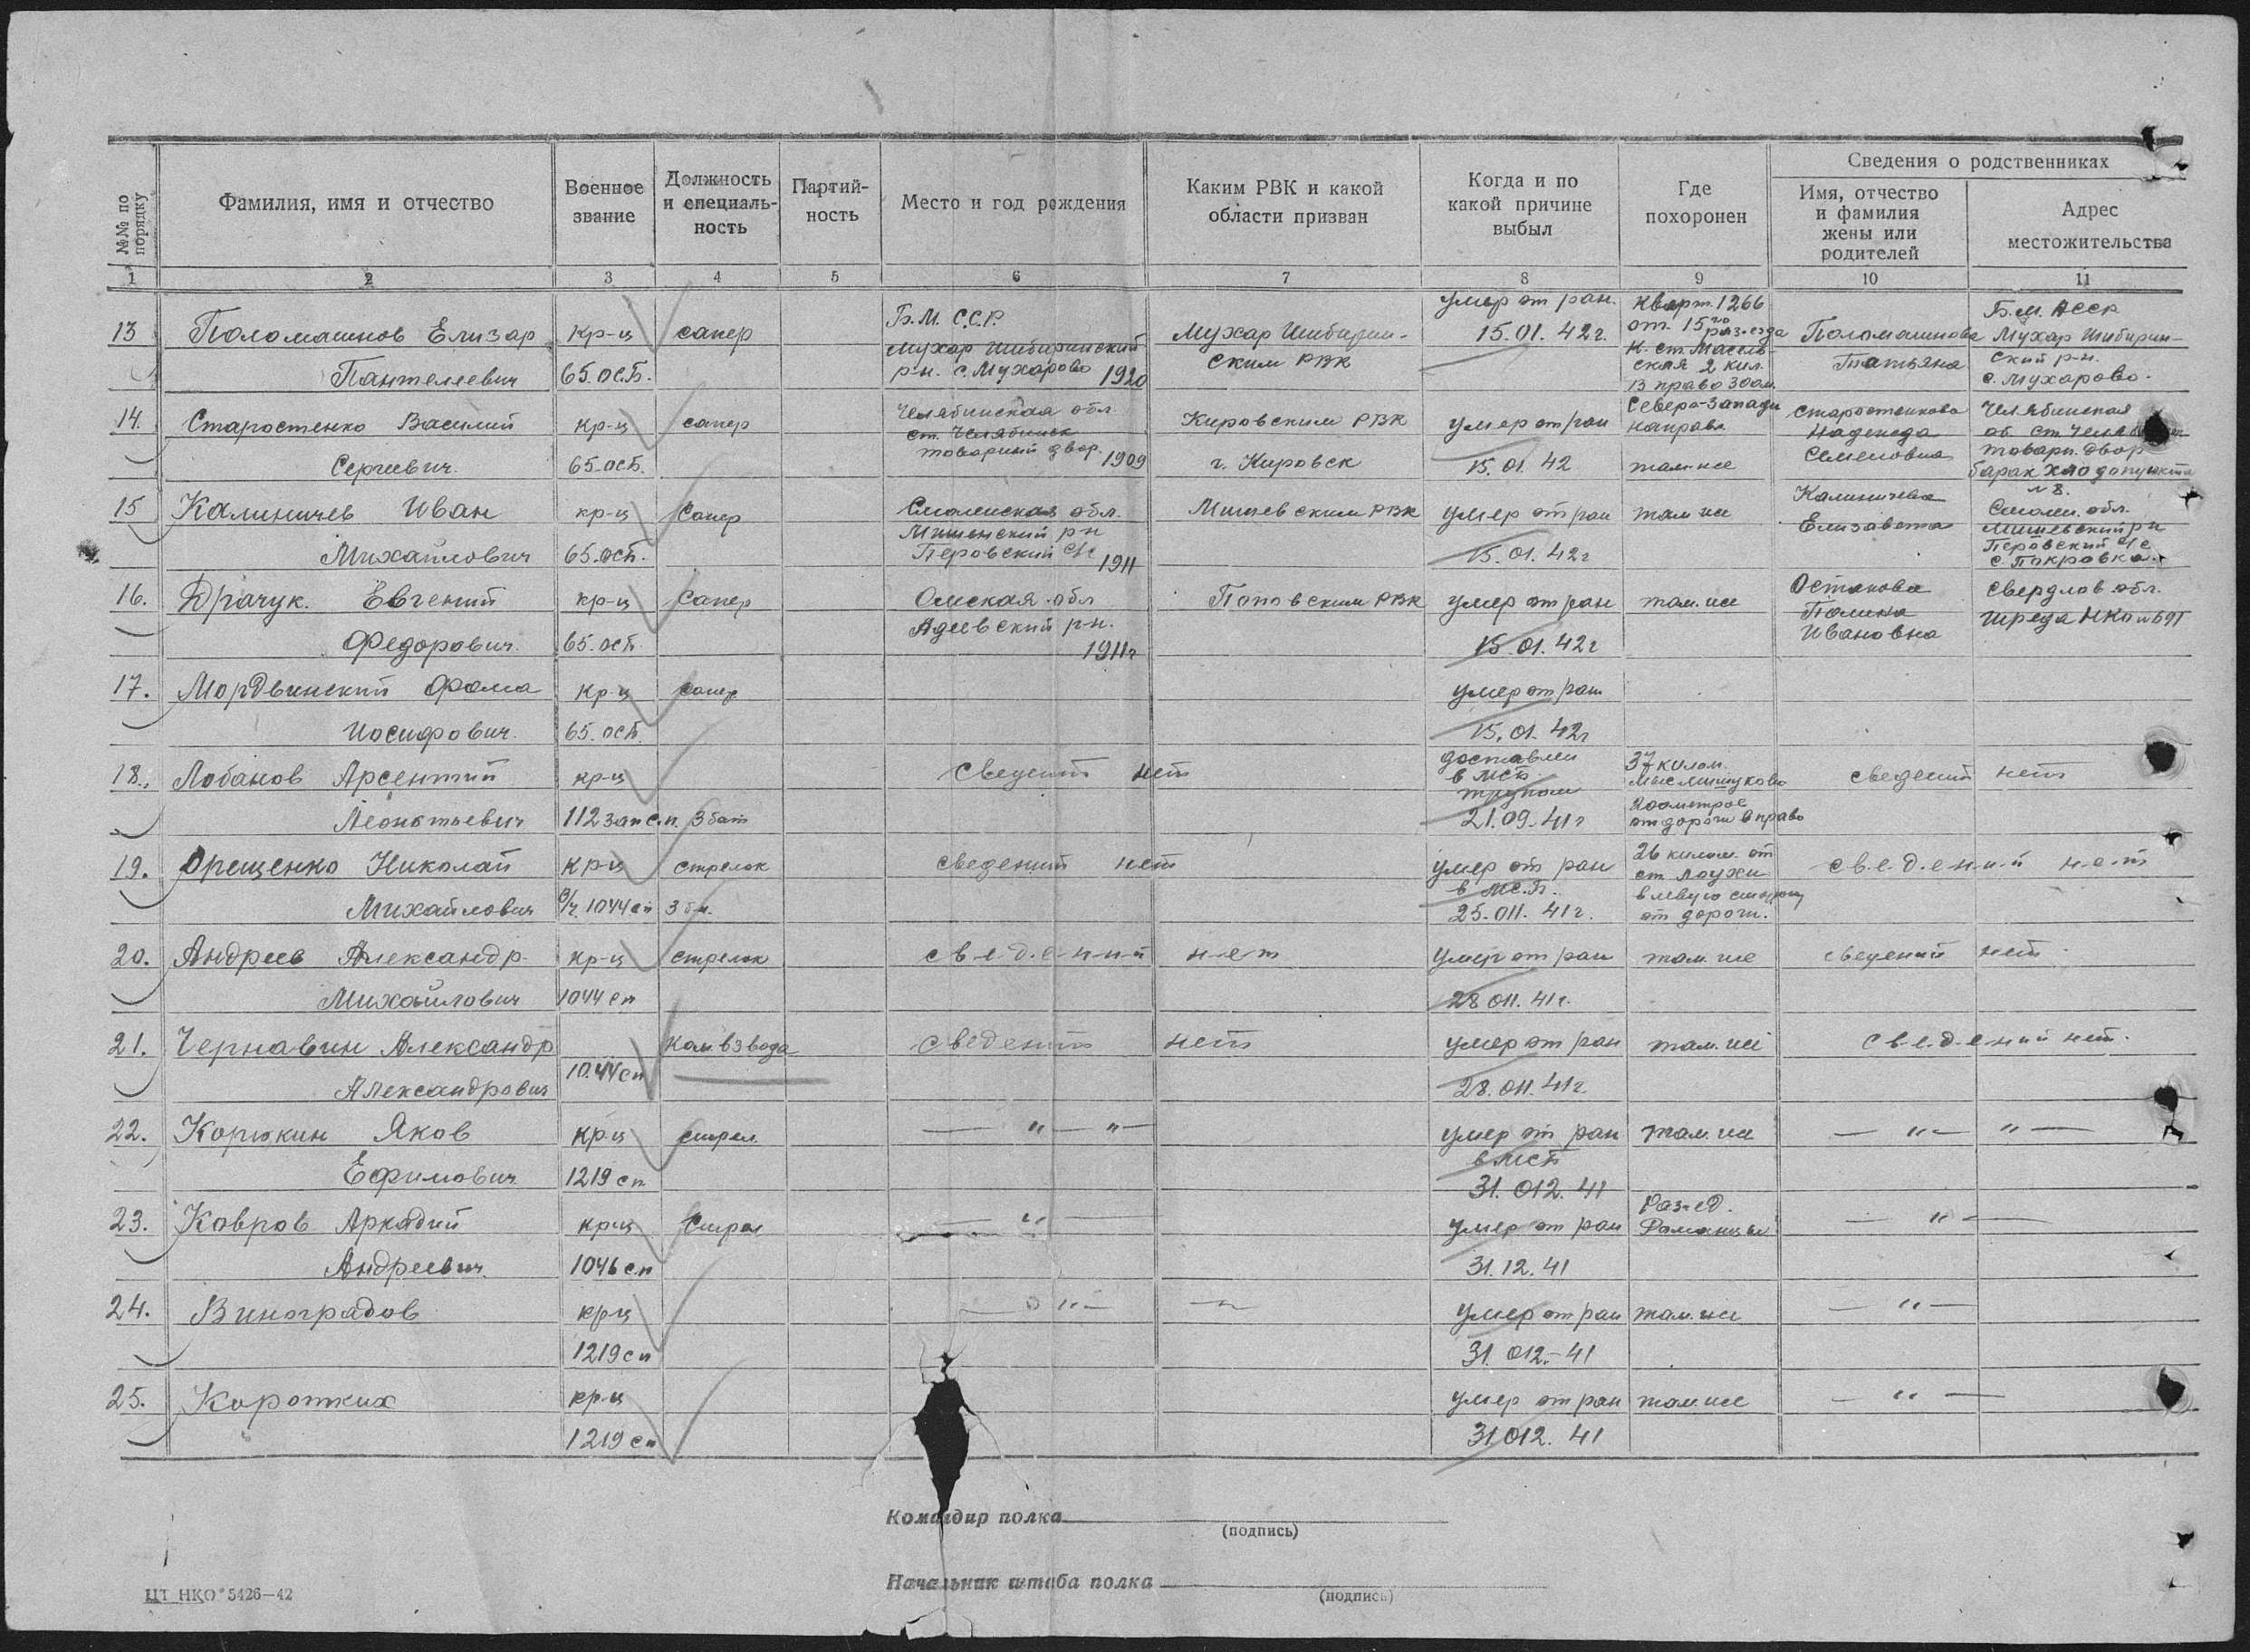 №№ по порядку
Фамилия, имя и отчество
Военное звание
Должность и специаль-ность
Партий-ность
Место и год рождения
Каким РВК и какой области призван
Когда и по какой причине выбыл
Где похоронен
Сведения о родственниках
Имя, отчество и фамилия жены или родителей
Адрес местожительства
1 2 3 4 5 6 7 8 9 10 11
13 Поломашнов Елизар
Пантелеевич
кр-ц
65.ос.б.
сапер
Б.М. С.С.Р.
Мухар Шибиринский
р-н. с. Мухарово 1920
Мухар Шибирин-
ским РВК
умер от ран.
15.01.42г.
Кварт. 1266
от 15го раз-езда
к. ст. Масель-
ская 2 кил.
в право 30 0м.
Северо-Запады
направл.
Поломашнова
Татьяна
Б.М. АССР
Мухар Шибирин-
ский р-н.
с. Мухарово.
14. Старостенко Василий
Сергеевич.
кр-ц
65.осб.
сапер
Челябинская обл.
ст. Челябинск
товарный двор. 1909
Кировским РВК
г. Кировск
умер от ран
15.01.42
там-же
Старостенкова
Надежда
Семеновна
Челябинская
об. ст. Челя
товарн. двор
барак хлодопункта
№8.
15 Калиничев Иван
Михайлович
кр-ц
65.осб.
Сапер
Смоленская обл.
Мишенский р-н
Перовский с/с 1911
Мишевским РВК
умер от ран
15.01.42г
там же
Калиничева
Елизавета
Смолен. обл.
Мишевский р н
Перовский с/с
с. Покровка.
16. Драчук. Евгений
Федорович.
кр-ц
65.осб.
Сапер
Омская обл
Адиевский р-н.
1911г
Поповским РВК
умер от ран
15.01.42г
там.же
Останова
Полина
Ивановна
Свердлов обл.
17. Мордвинский Фома
Иосифович.
кр-ц
65.осб.
сапер
умер от ран
15.01.42г
18. Лобанов Арсентий
Леонтьевич
кр-ц
112 зап с.п. 3 бат
сведений нет
доставлен
в МСБ
трупом
21.09.41г
37 килом.
мыс Мишуково
200 метров
от дороги вправо
сведений нет
19. Орещенко Николай
Михайлович
кр-ц
1044 сп
стрелок
3 б-н.
сведений нет
умер от ран
в МС.Б.
25.011.41г.
26 килом. от
ст. Лоухи
в левую сторону
от дороги.
с-в-е-д-е-н-и-й н-е-т
20. Андреев Александр
Михайлович
кр-ц
1044 сп
стрелок
с-в-е-д-е-н-и-й н-е-т
умер от ран
28 011.41г.
там.же
сведений нет.
21. Чернавин Александр
Александрович
1044 сп
Ком. взвода
сведений нет
умер от ран
28.011.41г.
там.же
с-в-е-д-е-ний нет.
22. Корюкин Яков
Ефимович
кр-ц
1219 сп
стрел.
— " — " —
умер от ран
в МСБ
31.012.41
там.же
— " — " —
23. Ковров Аркадий
Андреевич.
кр-ц
1046 сп
Стрел
— " —
умер от ран
31.12.41
Раз-ед.
Раманцы
— " —
24. Виноградов
кр-ц
1219 сп
— " — —
умер от ран
31.012.-41
там.же
— " —
25. Коротких
кр-ц
1219 сп
умер от ран
31 012.41
там.же
— " —
Командир полка
(подпись)
Начальник штаба полка
(подпись)
ЦТ НКО 5426—42